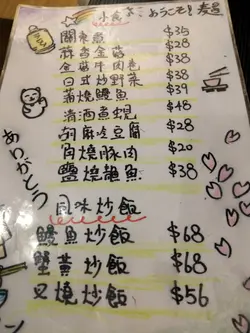 小食 ようこそ!
關東煮 $35
蒜香金菇 $28
金菇牛肉卷 $38
日式炒野菜 $38
蒲燒鰻魚 $39
清酒煮蜆 $48
胡麻冷豆腐 $28
角燒豚肉 $20
鹽燒雞魚 $38
ありがとう
風味炒飯
鰻魚炒飯 $68
蟹黃炒飯 $68
叉燒炒飯 $56